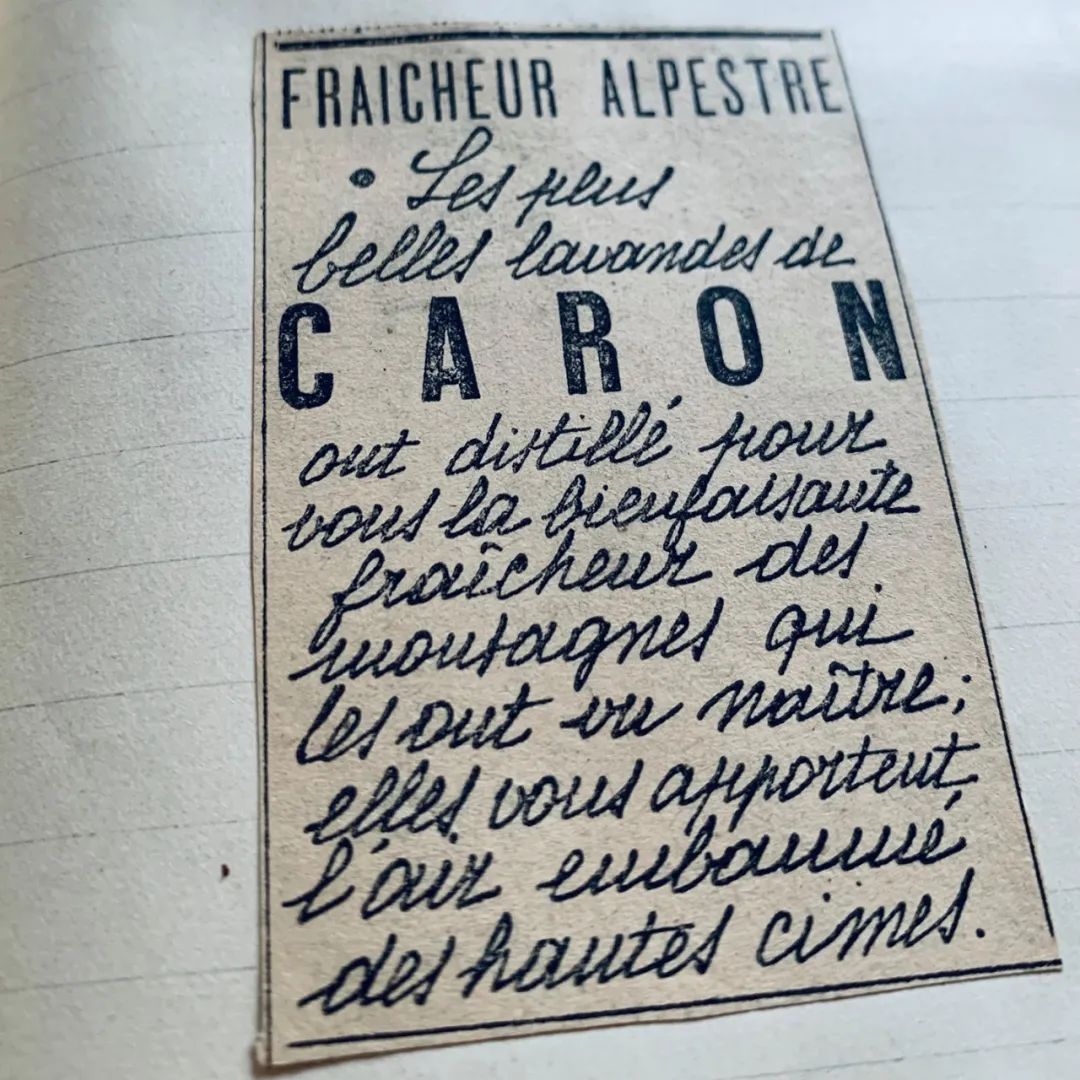 FRAICHEUR ALPESTRE
• Les plus
belles lavandes de
CARON
ont distillé pour
vous la bienfaisante
fraîcheur des
montagnes qui
les ont vu naître;
elles vous apportent
l'air embaumé
des hautes cimes.